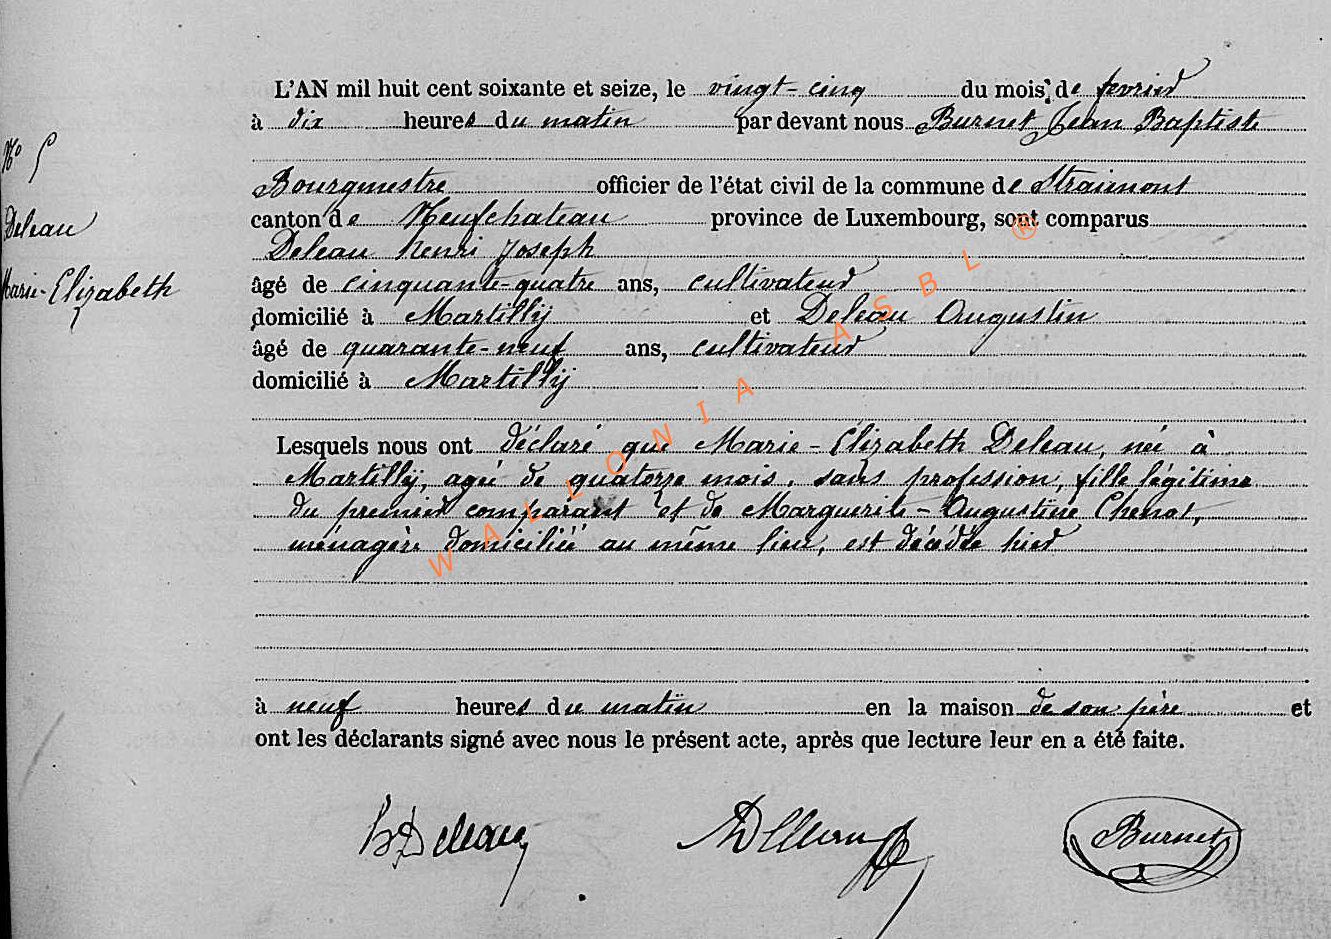 L'AN mil huit cent soixante et seize, le vingt-cinq du mois de fevrier
à dix heures du matin par devant nous Burnet Jean Baptiste
Bourgmestre officier de l'état civil de la commune de Straimont
canton de Neufchateau province de Luxembourg, sont comparus
Deleau Henri Joseph
âgé de cinquante-quatre ans, cultivateur
domicilié à Martilly et Deleau Augustin
âgé de quarante-neuf ans, cultivateur
domicilié à Martilly
Lesquels nous ont déclaré que Marie-Elizabeth Deleau, née à
Martilly, agée de quatorze mois, sans profession, fille légitime
du premier comparant et de Marguerite-Augustine Chenot,
ménagère domiciliée au même lieu, est décédée hier
à neuf heures du matin en la maison de son père et
ont les déclarants signé avec nous le présent acte, après que lecture leur en a été faite.
N° 5
Deleau
Marie-Elizabeth
HJDeleau
ADeleau
Burnet
WALLONIA ASBL ®